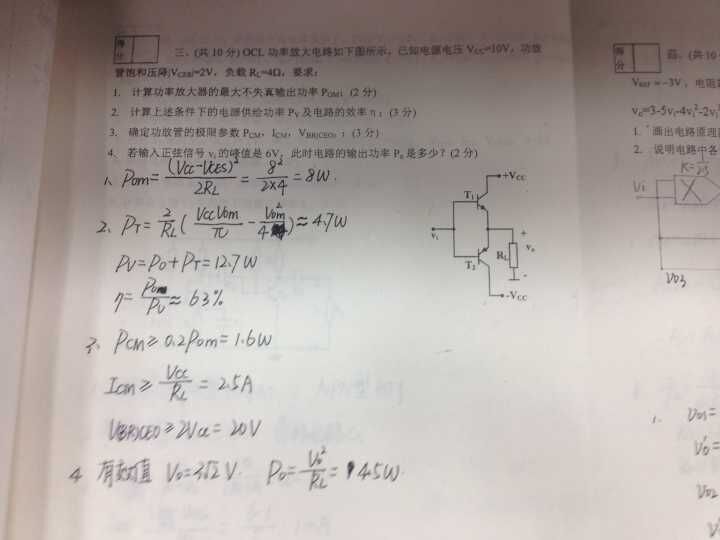 得分
三、(共 10 分) OCL 功率放大电路如下图所示，已知电源电压 VCC=10V，功放
管饱和压降|VCES|=2V，负载 RL=4Ω，要求：
1. 计算功率放大器的最大不失真输出功率 POM；(2 分)
2. 计算上述条件下的电源供给功率 PV 及电路的效率 η；(3 分)
3. 确定功放管的极限参数 PCM、ICM、VBR(CEO)；(3 分)
4. 若输入正弦信号 vi 的峰值是 6V，此时电路的输出功率 Po 是多少？(2 分)
1、Pom = (Vcc-VCES)²/2RL = 8²/2×4 = 8W
2、PT = 2/RL (VccVom/π - Vom²/4) ≈ 4.7W
PV = PO + PT = 12.7W
η = Pom/PV ≈ 63%
3、PCM ≥ 0.2Pom = 1.6W
ICM ≥ Vcc/RL = 2.5A
V(BR)CEO ≥ 2Vcc = 20V
4 有效值 Vo = 3√2 V. Po = Vo²/RL = 4.5W.
+VCC
T1
vi
+
RL
vo
-
T2
-VCC
得分
四、(共 10
VREF = -3V，电阻
vo=3-5vi-4vi²-2vi³
1. 画出电路原理
2. 说明电路中各
Vi
X
Vo3
1.
Vo1 =
Vo' =
Vo2